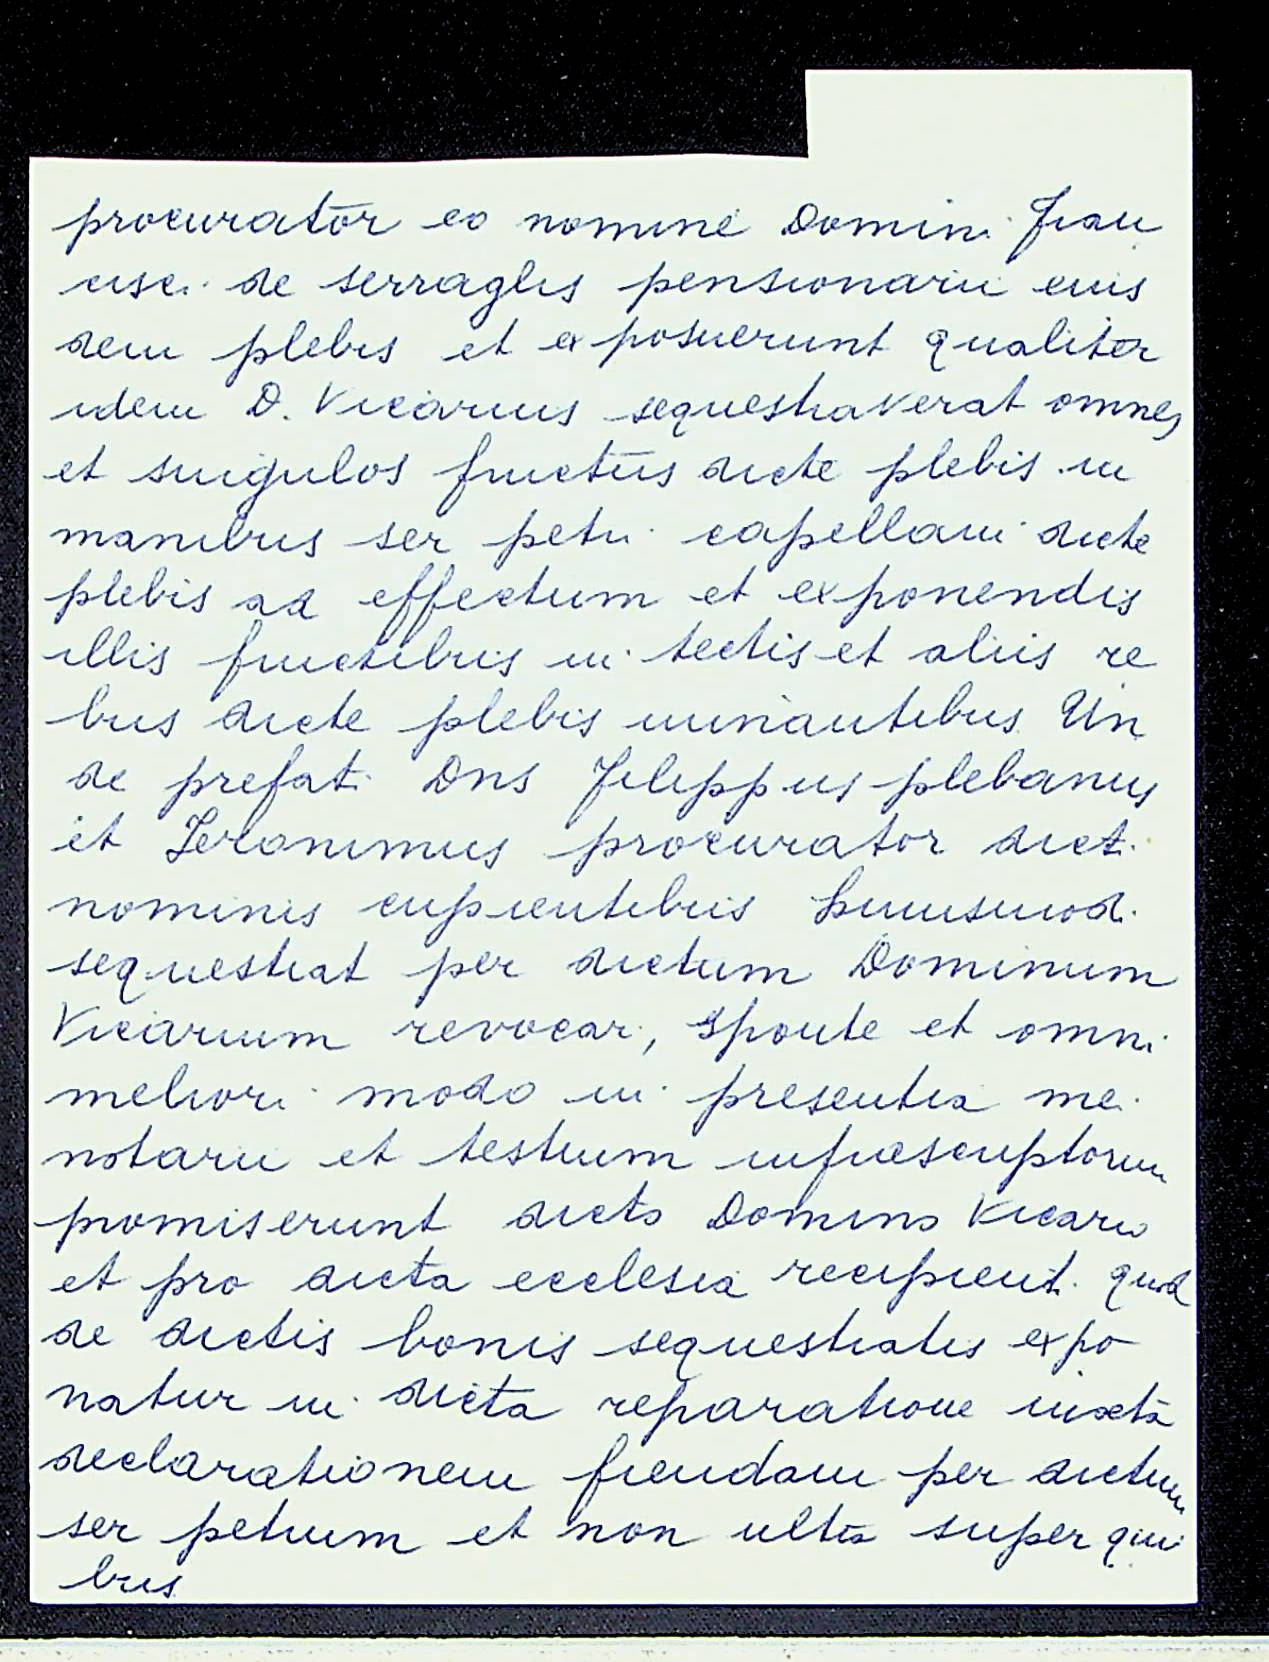 procurator eo nomine Domini Fran
cisci de serraglis pensionarii eius
dem plebis et exposuerunt qualiter
idem D. Vicarius sequestraverat omnes
et singulos fructus dicte plebis in
manibus ser petri capellani dicte
plebis ad effectum et exponendis
illis fructibus in tectis et aliis re
bus dicte plebis minantibus Un
de prefati Dns Filippus plebanus
et Jeronimus procurator dict.
nominis cupientibus huiusmod.
sequestrat per dictum Dominum
Vicarium revocari, sponte et omni
meliori modo in presentia mei
notarii et testium infrascriptorum
promiserunt dicto Domino Vicario
et pro dicta ecclesia recipient. quod
de dictis bonis sequestratis expo
natur in dicta reparatione iuxta
declarationem fiendam per dictum
ser petrum et non ultra super qui
bus